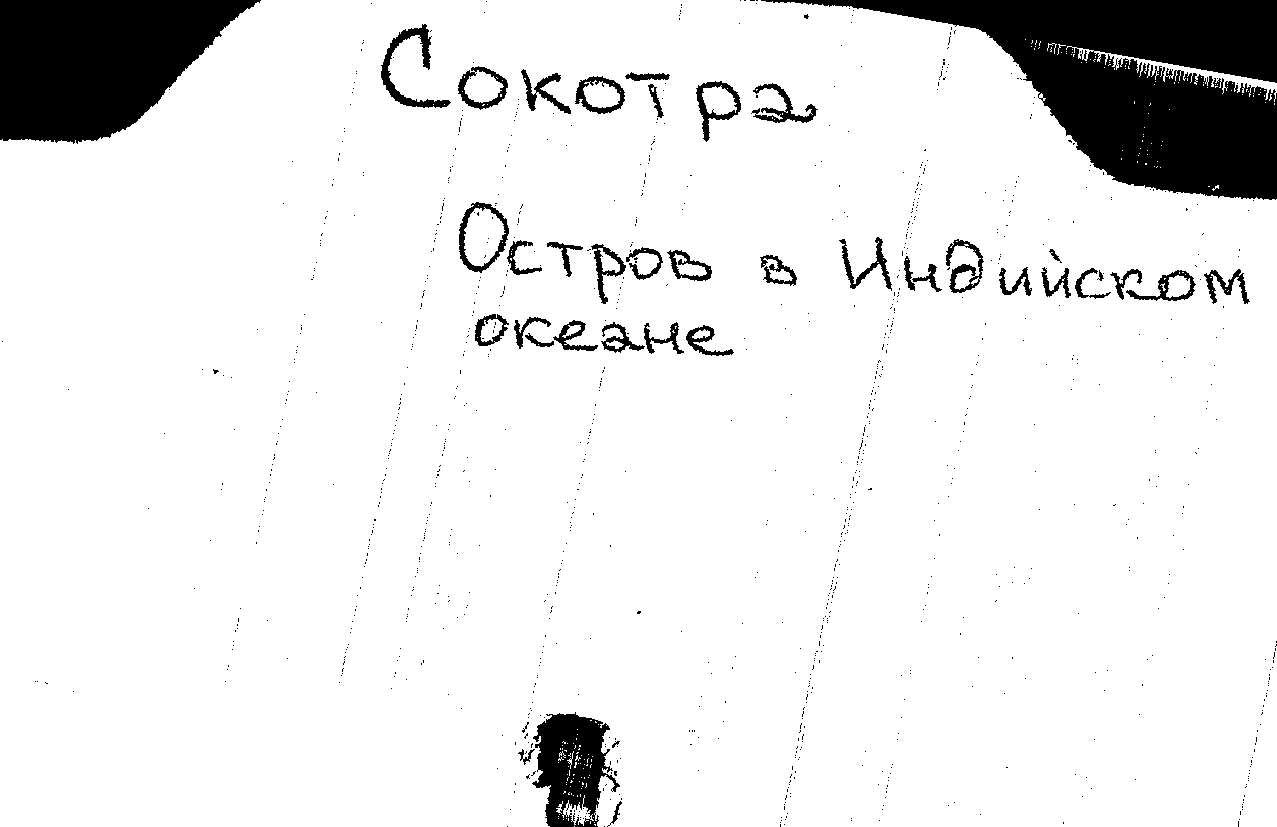 Сокотра
Остров в Индийском
океане